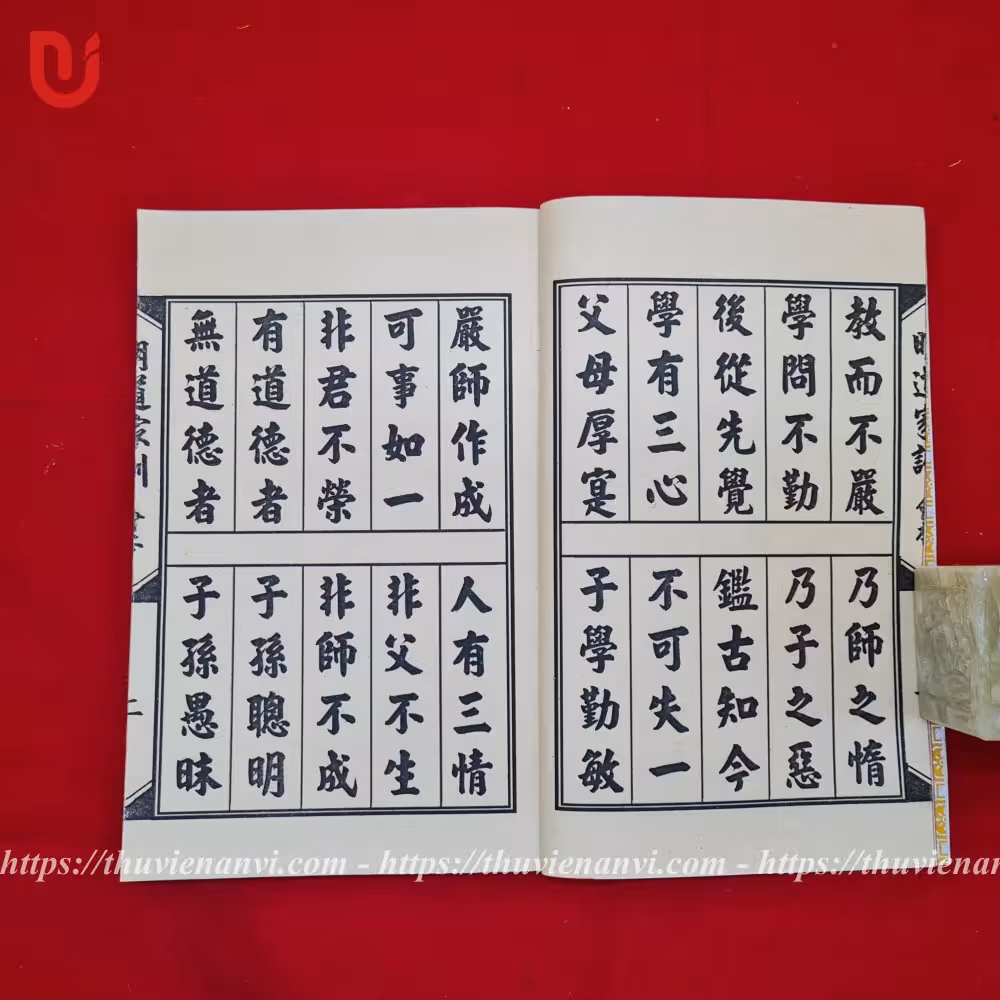 明道家訓
教而不嚴
乃師之惰
學問不勤
乃子之惡
後從先覺
鑑古知今
學有三心
不可失一
父母厚寔
子學勤敏
嚴師作成
人有三情
可事如一
非父不生
非君不榮
非師不成
有道德者
子孫聰明
無道德者
子孫愚昧
明道家訓
二
https://thuvienanvi.com - https://thuvienanvi.com - https://thuvienanvi